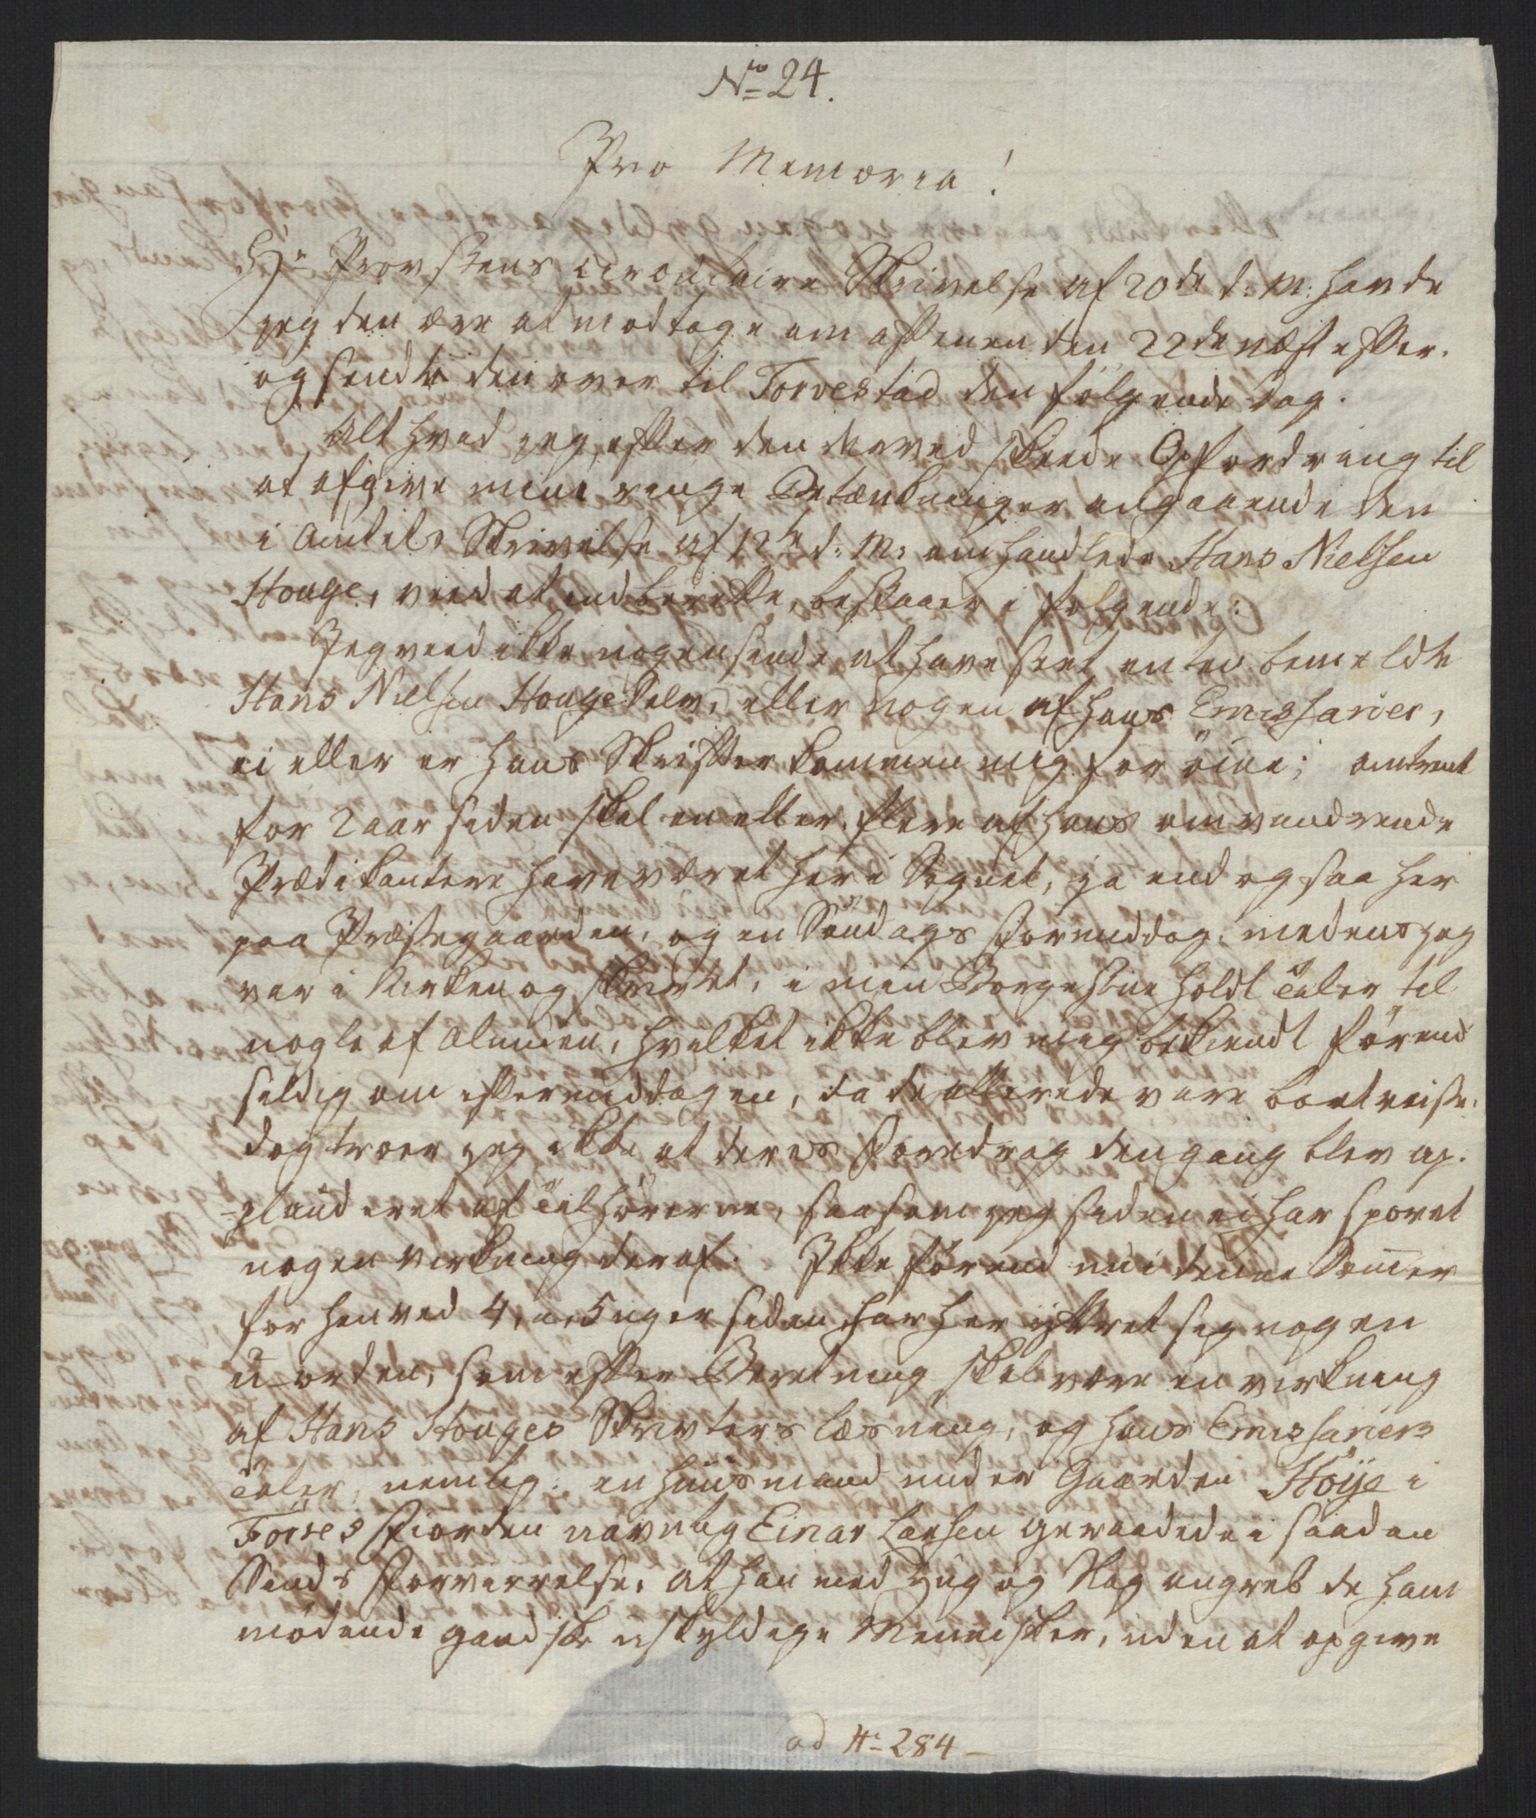 No 24.
Pro Memoria!
Hr Provstens circulaire Skrivelse af 20de d. M: havde
jeg den ære at modtage om aftenen den 22de næst efter.
og sendte den over til Torvestad den følgende dag.
Alt hvad jeg, efter den derved skeede Opfordring til
at afgive mine ringe Betænkninger angaaende den
i Amtets Skrivelse af 12te d: M: omhandlede Hans Nielsen
Houge, veed at indberette, bestaaer i følgende:
Jeg veed ikke nogensinde at have seet enten bemeldte
Hans Nielsen Houge selv, eller nogen af hans Emissarier,
ei eller er hans Skrifter kommen mig for öine; omtrent
for 2 aar siden skal en eller flere af hans omvandrende
Prædikantere have været her i Sognet, ja endog saa her
paa Præstegaarden, og en Søndags Formiddag, medens jeg
var i Kirken og skrivtet, i min Borgestue holdt taler til
nogle af Almuen, hvilket ikke blev mig bekiendt førend
sildig om eftermiddagen, da de allerede vare bortreiste.
dog troer jeg ikke at deres Foredrag dengang blev ap-
-plauderet af tilhørerne, saasom jeg siden ei har sporet
nogen virkning deraf. Ikke førend nu i denne Sommer
for henved 4, a 5 uger siden har her yttret sig nogen
u-orden, som efter Beretning skal være en virkning
af Hans Houges Skrivters læsning, og hans Emissariers
taler, nemlig: en Huusmand under Gaarden Höÿe i
Forres Fiorden navnlig Einar Larsen geraadede i saadan
Sinds Forvirrelse, at han med Hug og Slag angreb de ham
mødende gandske uskyldige Mennisker, uden at opgive
ad No 284 –